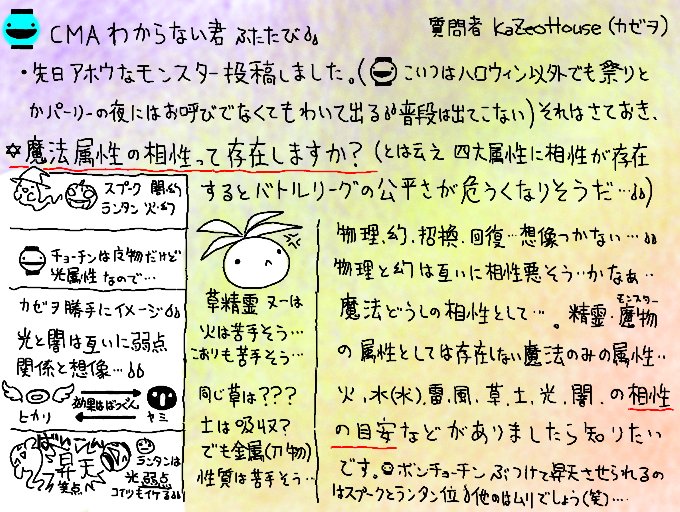 CMAわからない君 ふたたび♪♪
質問者 KaZeoHouse (カゼヲ)
・先日アホウなモンスター投稿しました。(こいつはハロウィン以外でも祭りと
かパーリーの夜にはお呼びでなくてもわいて出る♪♪普段は出てこない)それはさておき、
☆魔法属性の相性って存在しますか?(とは云え 四大属性に相性が存在
するとバトルリーグの公平さが危うくなりそうだ…♪♪)
スプーク 闇・幻
ランタン 火・幻
チョーチンは皮物だけど
光属性 なので…
カゼヲ勝手にイメージ♪♪
光と闇は互いに弱点
関係と想像…♪♪
効果はばつぐん
ヒカリ
ヤミ
ばいこん
昇天
笑点へ
ランタンは
光弱点
コイツもイケる♪♪
草精霊 又は
火は苦手そう…
こおりも苦手そう…
同じ草は???
土は吸収?
でも金属(刀物)
性質は苦手そう…
物理、幻、招換、回復…想像つかない…♪♪
物理と幻は互いに相性悪そう…かなぁ…
魔法どうしの相性として…。精霊・魔物
モンスター
の属性としては存在しない魔法のみの属性…
火、水(氷)、雷、風、草、土、光、闇、の相性
の目安などがありましたら知りたい
です。ボンチョーチン ぶつけて昇天させられるの
はスプークとランタン位♪他のはムリでしょう(笑)….